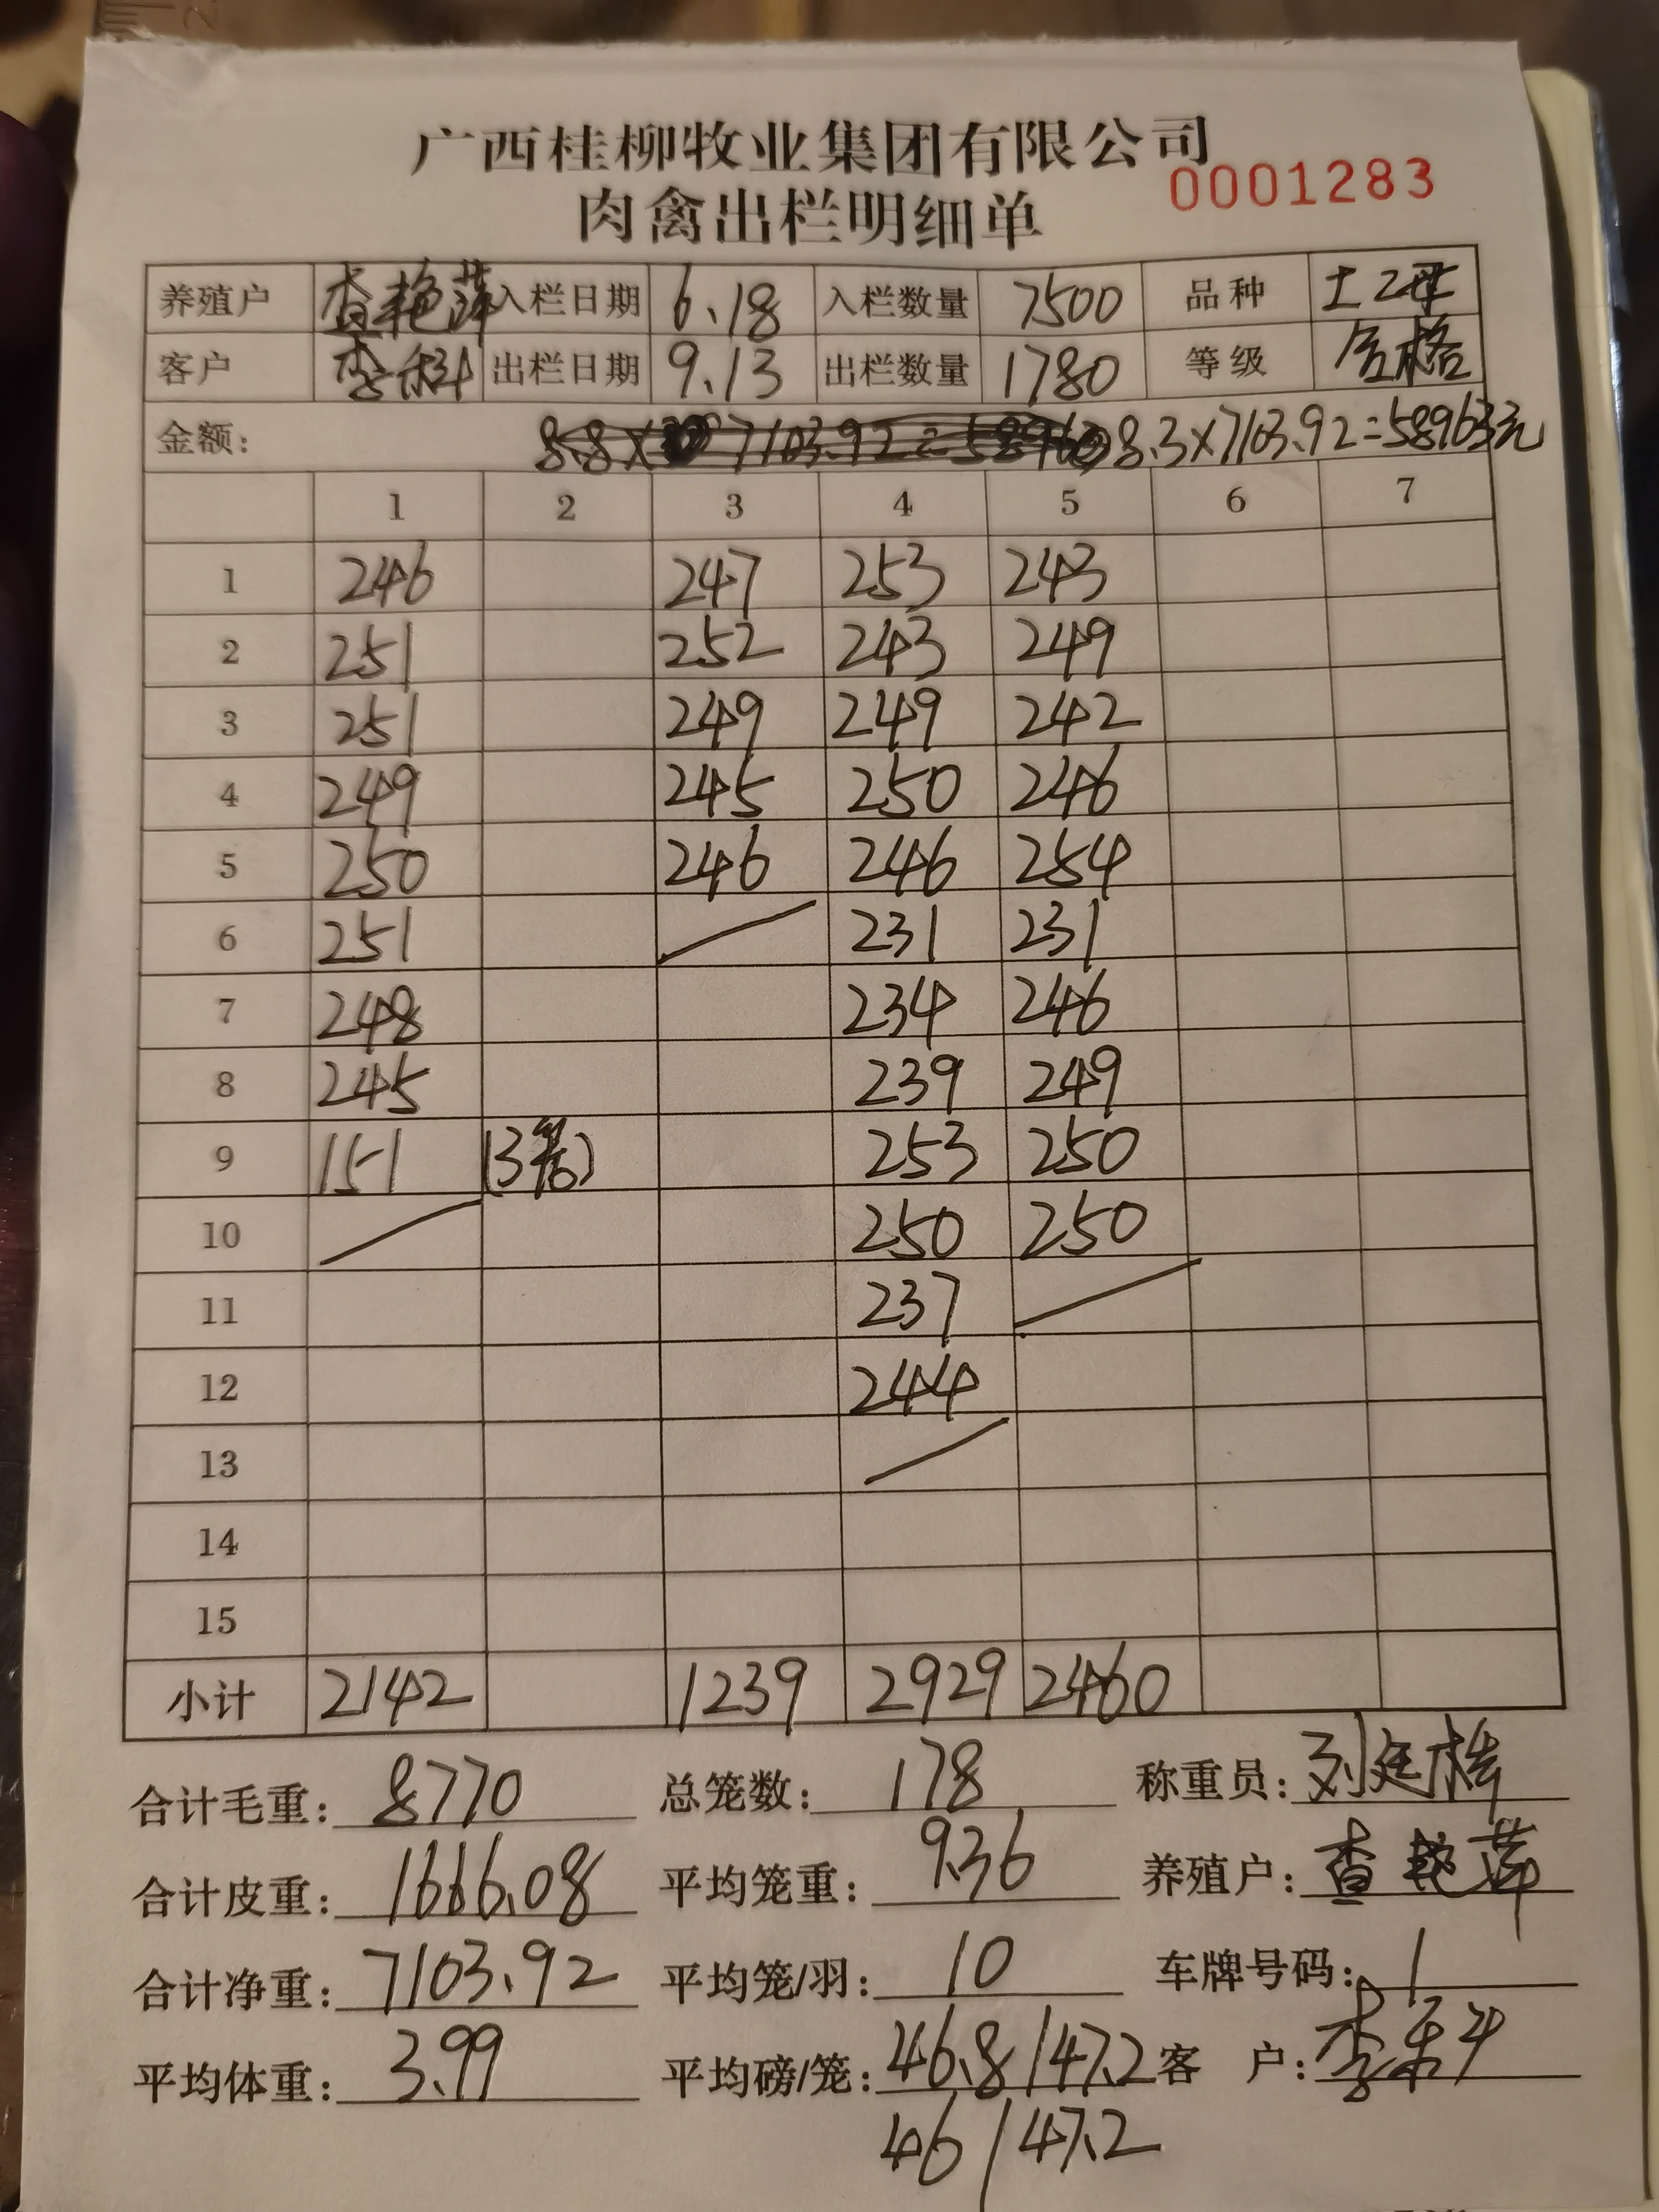 广西桂柳牧业集团有限公司
0001283
肉禽出栏明细单
养殖户 查艳萍 入栏日期 6.18 入栏数量 7500 品种 土2母
客户 李科 出栏日期 9.13 出栏数量 1780 等级 合格
金额: 8.3×7103.92=58963元
1 2 3 4 5 6 7
1 246 247 253 243
2 251 252 243 249
3 251 249 249 242
4 249 245 250 246
5 250 246 246 254
6 251 231 231
7 248 234 246
8 245 239 249
9 151 (3笼) 253 250
10 250 250
11 237
12 244
13
14
15
小计 2142 1239 2929 2460
合计毛重: 8770 总笼数: 178 称重员: 刘廷
合计皮重: 1666.08 平均笼重: 9.36 养殖户: 查艳萍
合计净重: 7103.92 平均笼/羽: 10 车牌号码: 1
平均体重: 3.99 平均磅/笼: 46.8/47.2 客 户: 李科
46/47.2